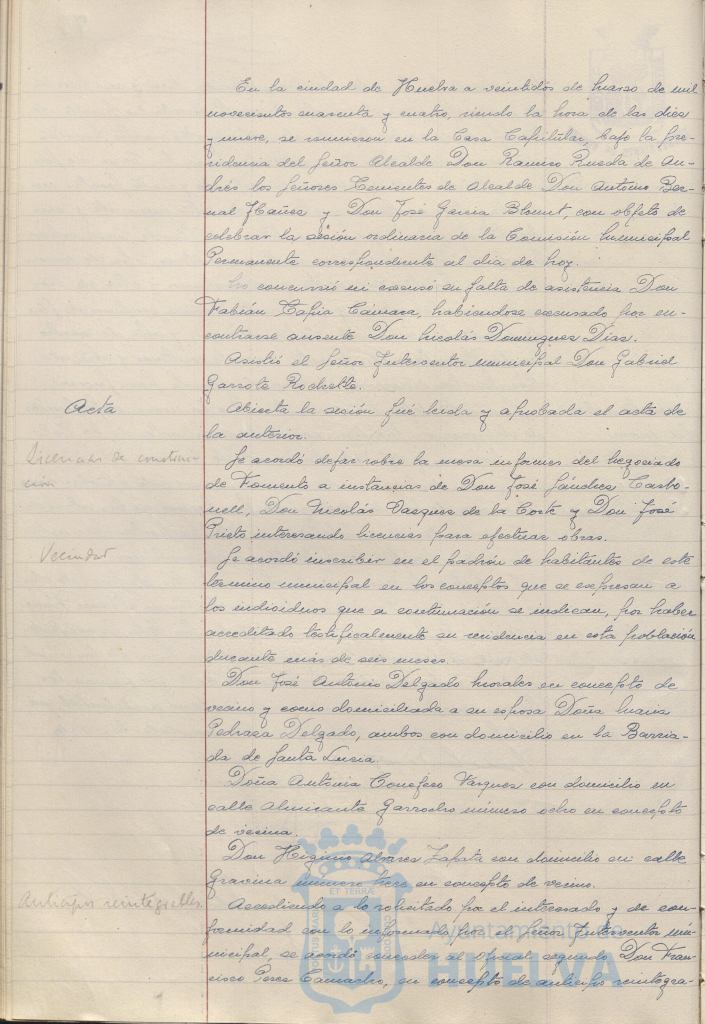 En la ciudad de Huelva a veintidós de marzo de mil
novecientos cuarenta y cuatro, siendo la hora de las diez
y nueve, se reunieron en la Casa Capitular, bajo la pre-
sidencia del Señor Alcalde Don Ramiro Rueda de An-
drés los Señores Tenientes de Alcalde Don Antonio Ber-
nal Ibañez y Don José Garcia Blount, con objeto de
celebrar la sesión ordinaria de la Comisión Municipal
Permanente correspondiente al dia de hoy.
No concurrió ni excusó su falta de asistencia Don
Fabián Tapia Cámara, habiendose excusado por en-
contrarse ausente Don Nicolás Dominguez Diaz.
Asistió el Señor Interventor municipal Don Gabriel
Garrote
Acta
Abierta la sesión fué leida y aprobada el acta de
la anterior.
Licencias de construc-
ción
Se acordó dejar sobre la mesa informes del Negociado
de Fomento a instancias de Don José Sánchez Carbo-
nell, Don Nicolás Vazquez de la Corte y Don José
Prieto interesando licencias para efectuar obras.
Vecindad
Se acordó inscribir en el padrón de habitantes de este
término municipal en los conceptos que se expresan a
los individuos que a continuación se indican, por haber
acreditado testificalmente su residencia en esta población
durante más de seis meses.
Don José Antonio Delgado Morales en concepto de
vecino y como domiciliada a su esposa Doña Maria
Pedraza Delgado, ambos con domicilio en la Barria-
da de Santa Lucia.
Doña Antonia Conefero Vazquez con domicilio en
calle Almirante Garrocho número ocho en concepto
de vecina.
Don Higinio Alvarez Zapata con domicilio en calle
Gravina número trece en concepto de vecino.
Anticipos reintegrables.
Accediendo a lo solicitado por el interesado y de con-
formidad con lo informado por el Señor Interventor mu-
nicipal, se acordó conceder al Oficial segundo Don Fran-
cisco Perez Camacho, en concepto de anticipo reintegra-
ET TERRÆ
PORTUS MARIS
CUSTODIA
Ayuntamiento de
HUELVA